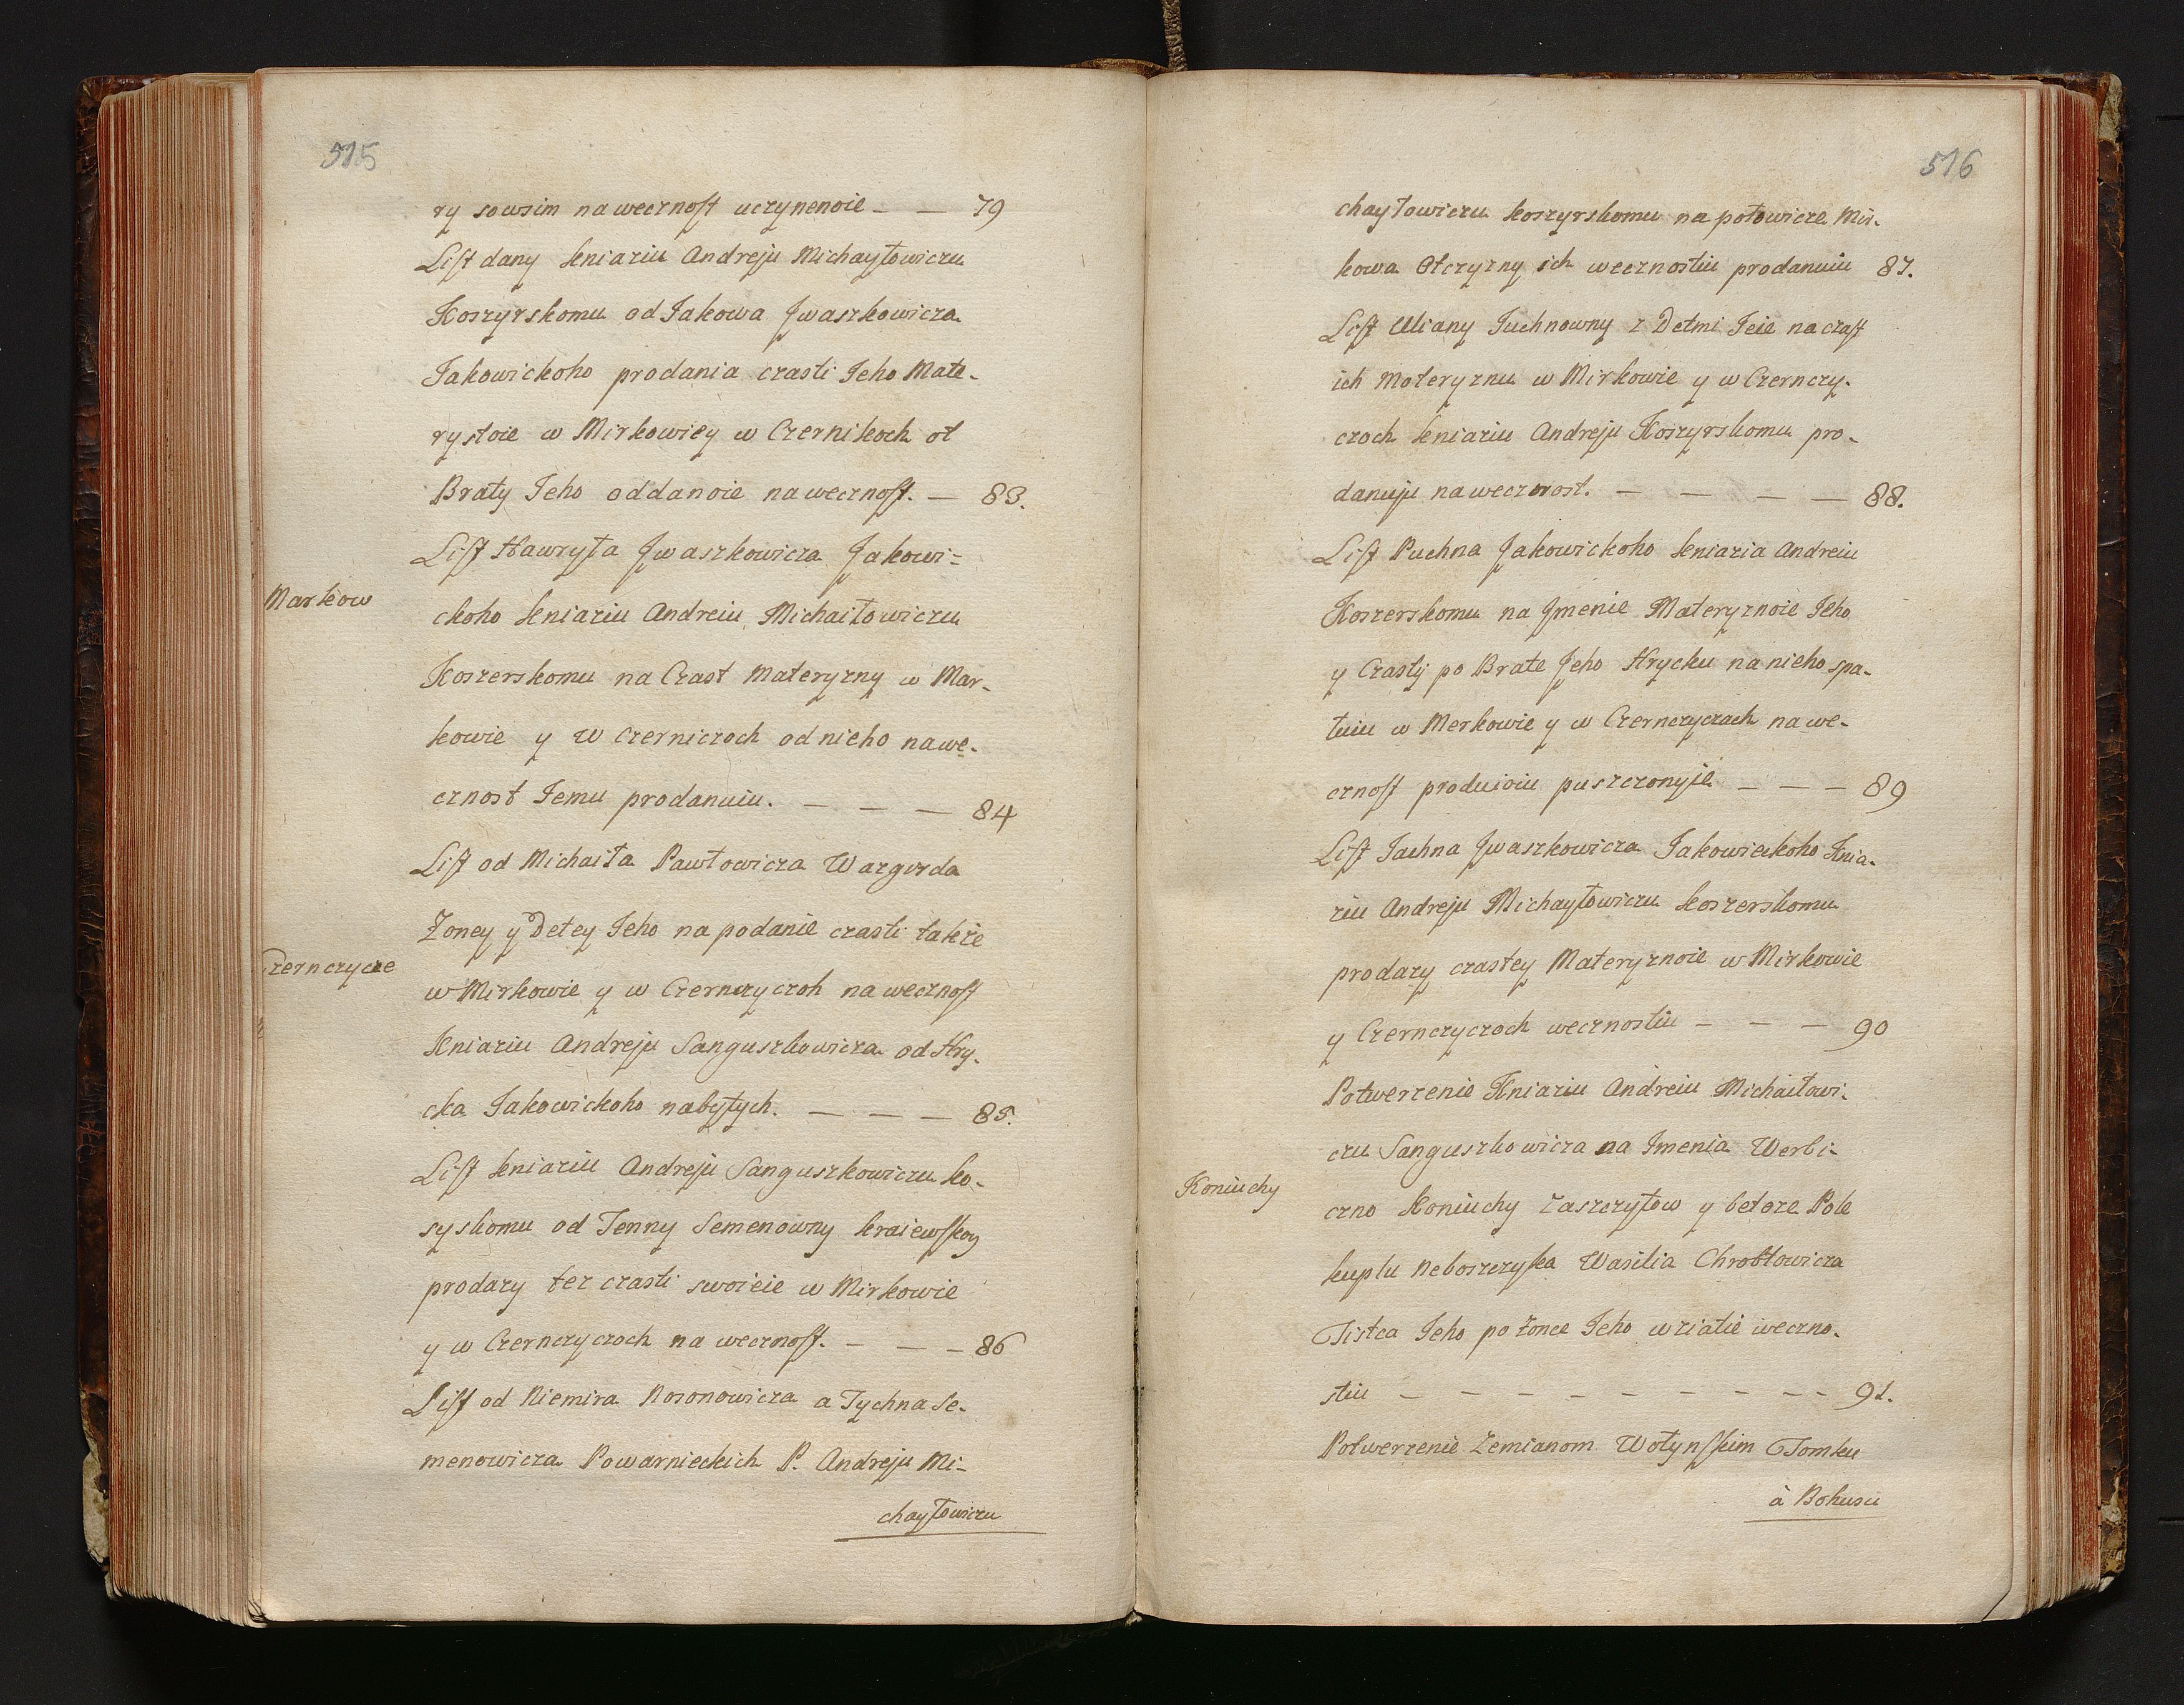 515
ry sowsim na wecznost uczynenoie — — 79
List dany kniaziu Andreju Michayłowiczu
Koszyrskomu od Jakowa Jwaszkowicza
Jakowickoho prodania czasti Jeho Mate-
rystoie w Mirkowiey w Czernikoch ot
Braty Jeho oddanoie na wecznost. — 83.
List Hawryła Jwaszkowicza Jakowi=
Markow
ckoho kniaziu Andreiu Michaiłowiczu
Koszerskomu na Czast Materyzny w Mar-
kowie y w Czerniczoch od nieho na we-
cznost Jemu prodanuiu. — — — 84
List od Michaiła Pawłowicza Wazgirda
Żoney y Detey Jeho na podanie czasti także
Czernczycze
w Mirkowie y w Czernczyczoh na wecznost
Kniaziu Andreju Sanguszkowicza od Hry-
cka Jakowickoho nabytych. — — — 85.
List kniaziu Andreju Sanguszkowiczu ko-
syskomu od Jenny Semenowny kraiewskoy
prodazy tez czasti swoieie w Mirkowie
y w Czernczyczoch na wecznost. — — — 86
List od Niemira Nosonowicza a Tychna Se-
menowicza Powarnieckich P. Andreju Mi-
chayłowiczu
516
chayłowiczu koszyrskomu na połowicze Mir-
kowa Otczyzny ich wecznostiu prodanuiu 87.
List Uliany Juchnowny z Detmi Jeie na czast
ich Moteryznu w Mirkowie y w Czernczy-
czoch kniaziu Andreju Koszyrskomu pro-
danuju na wecznost. — — — — 88.
List Puchna Jakowickoho kniazia Andreiu
Koszerskomu na Jmenie Materyznoie Jeho
y Czasty po Brate Jeho Hrycku na nieho spa-
łuiu w Merkowie y w Czernczyczach na we-
cznost produioiu puszczonyie — — — 89
List Jachna Jwaszkowicza Jakowieckoho Knia-
ziu Andreju Michayłowiczu koszerskomu
prodazy czastey Materyznoie w Mirkowie
y Czernczyczoch wecznostiu — — — 90
Potwerzenie Kniaziu Andreiu Michaiłowi-
czu Sanguszkowicza na Jmenia Werbi-
Koniuchy
czno Koniuchy Zaszczytow y betoze Pole
kuplu Neboszczyka Wasilia Chrobłowicza
Tistca Jeho po żonce Jeho wziatie weczno-
stiu — — — — — — — — — 91.
Potwerzenie Zemianom Wołynskim Tomku
à Bohusu